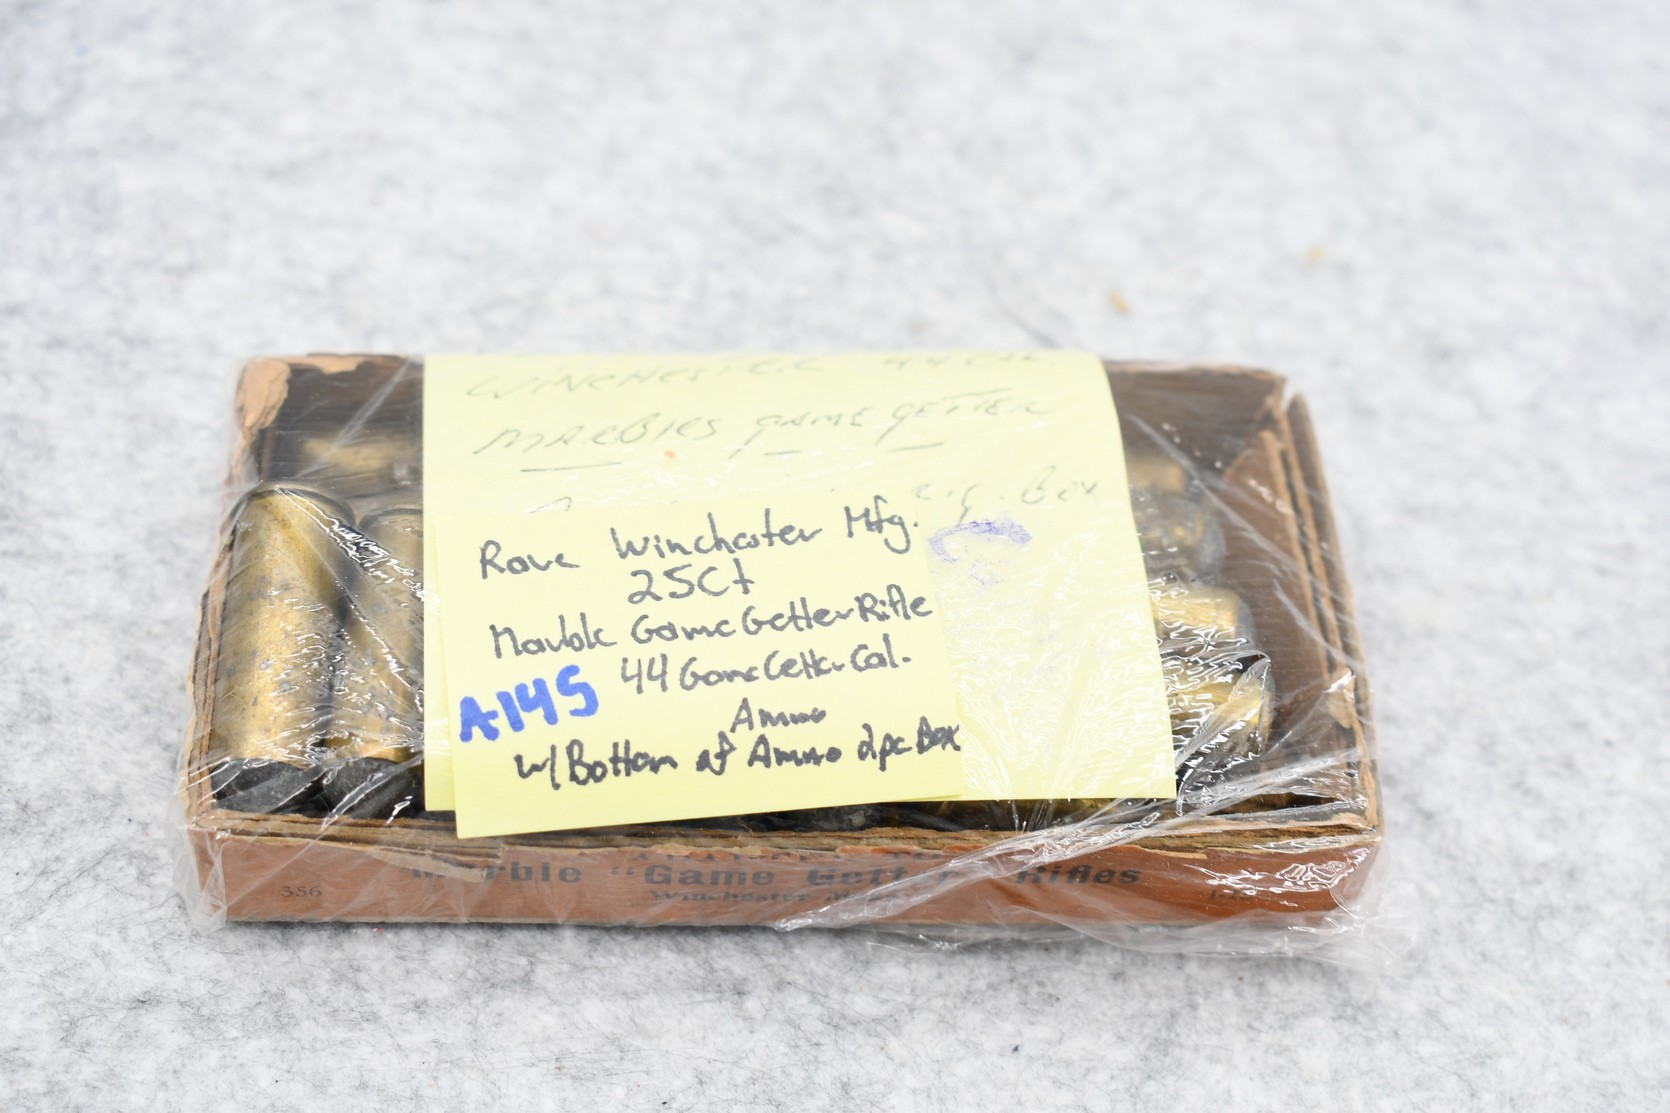 WINCHESTER 44 CAL
MARBlES GAME GETTER
Box
Rare Winchester Mfg.
25Ct
Marble Game Getter Rifle
44 Game Getter Cal.
A145
Ammo
w/ Bottom of Ammo 2pc Box
Marble "Game Getter" Rifles
356
Winchester